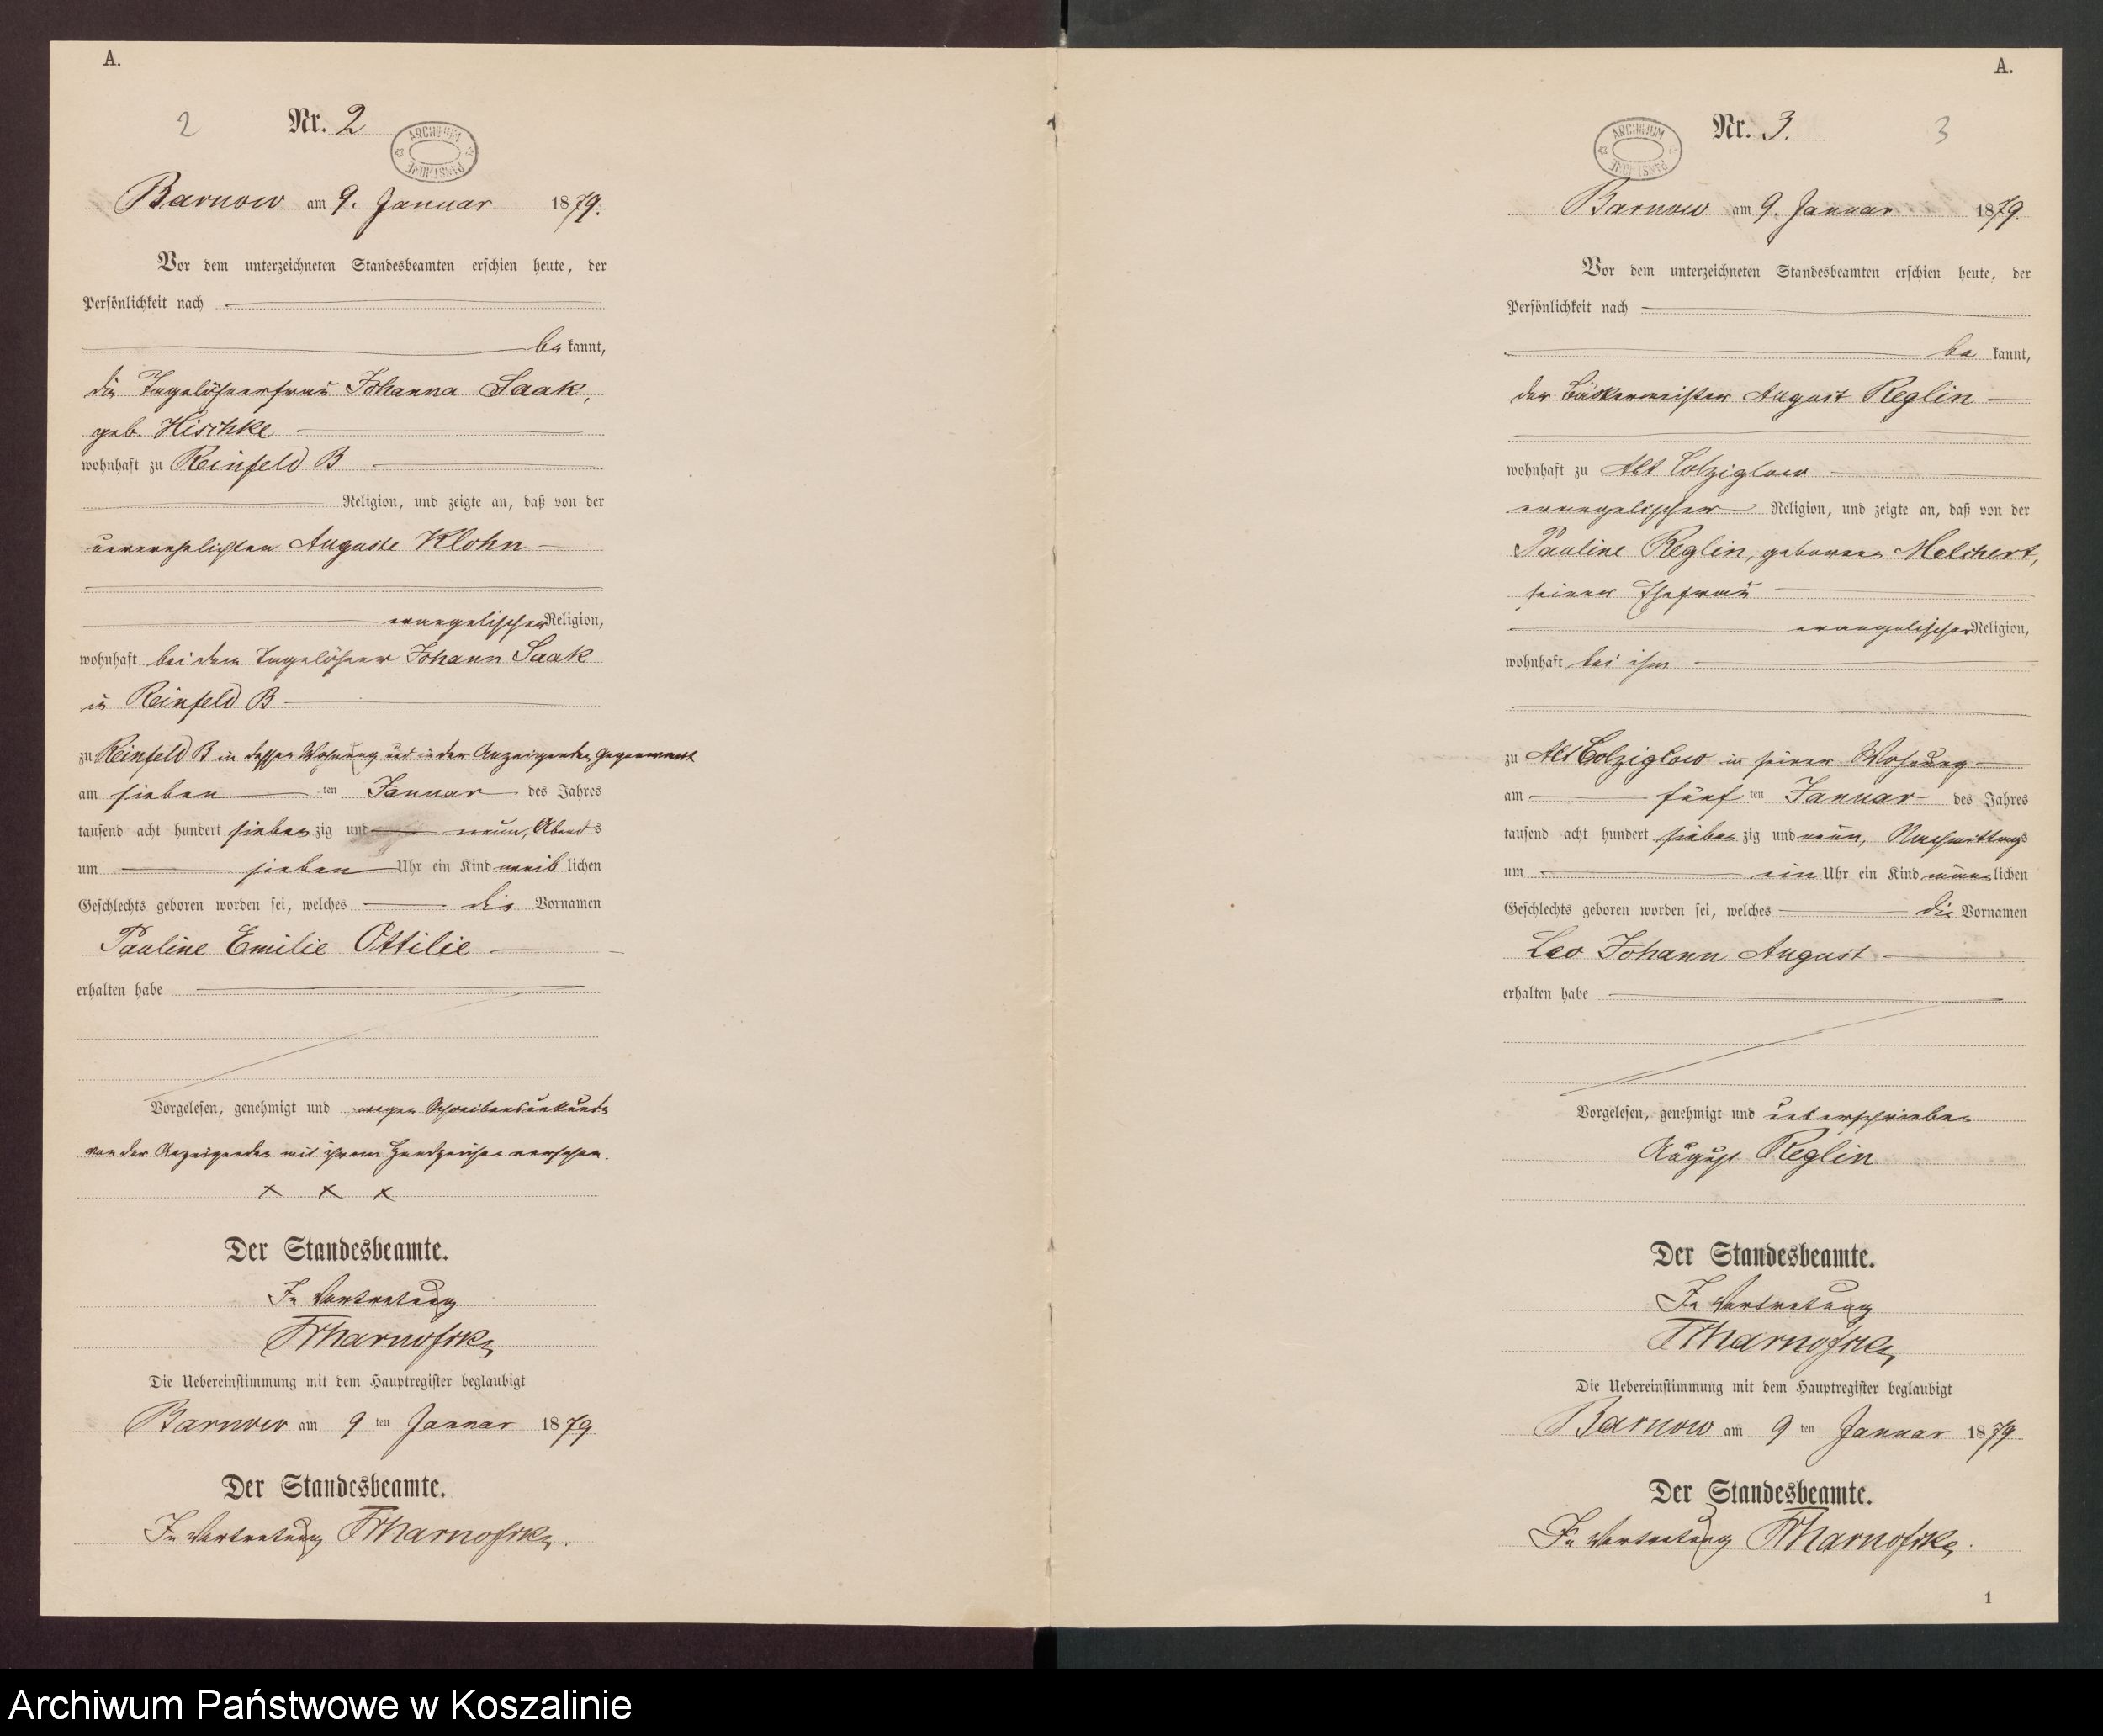 A.
2
Nr. 2
ARCHIWUM PAŃSTWOWE
Barnow am 9. Januar 1879.
Vor dem unterzeichneten Standesbeamten erschien heute, der
Persönlichkeit nach
bekannt,
die Tagelöhnerfrau Johanna Saak,
geb. Hischke
wohnhaft zu Reinfeld B
Religion, und zeigte an, daß von der
unverehelichten Auguste Klohn
evangelischer Religion,
wohnhaft bei dem Tagelöhner Johann Saak
in Reinfeld B
zu Reinfeld B in dessen Wohnung und in der Anzeigenden Gegenwart
am sieben ten Januar des Jahres
tausend acht hundert siebenzig und neun, Abends
um sieben Uhr ein Kind weiblichen
Geschlechts geboren worden sei, welches die Vornamen
Pauline Emilie Ottilie
erhalten habe
Vorgelesen, genehmigt und wegen Schreibensunkunde
von der Anzeigenden mit ihrem Handzeichen versehen.
x x x
Der Standesbeamte.
In Vertretung
Die Uebereinstimmung mit dem Hauptregister beglaubigt
Barnow am 9 ten Januar 1879
Der Standesbeamte.
In Vertretung
A.
Nr. 3.
3
ARCHIWUM PAŃSTWOWE
Barnow am 9. Januar 1879.
Vor dem unterzeichneten Standesbeamten erschien heute, der
Persönlichkeit nach
bekannt,
der Bäckermeister August Reglin
wohnhaft zu Alt Colziglow
evangelischer Religion, und zeigte an, daß von der
Pauline Reglin, geborenen Melchert,
seiner Ehefrau
evangelischer Religion,
wohnhaft bei ihm
zu Alt Colziglow in seiner Wohnung
am fünf ten Januar des Jahres
tausend acht hundert siebenzig und neun, Nachmittags
um ein Uhr ein Kind männlichen
Geschlechts geboren worden sei, welches die Vornamen
Leo Johann August
erhalten habe
Vorgelesen, genehmigt und unterschrieben
August Reglin
Der Standesbeamte.
In Vertretung
Die Uebereinstimmung mit dem Hauptregister beglaubigt
Barnow am 9 ten Januar 1879
Der Standesbeamte.
In Vertretung
1
Archiwum Państwowe w Koszalinie